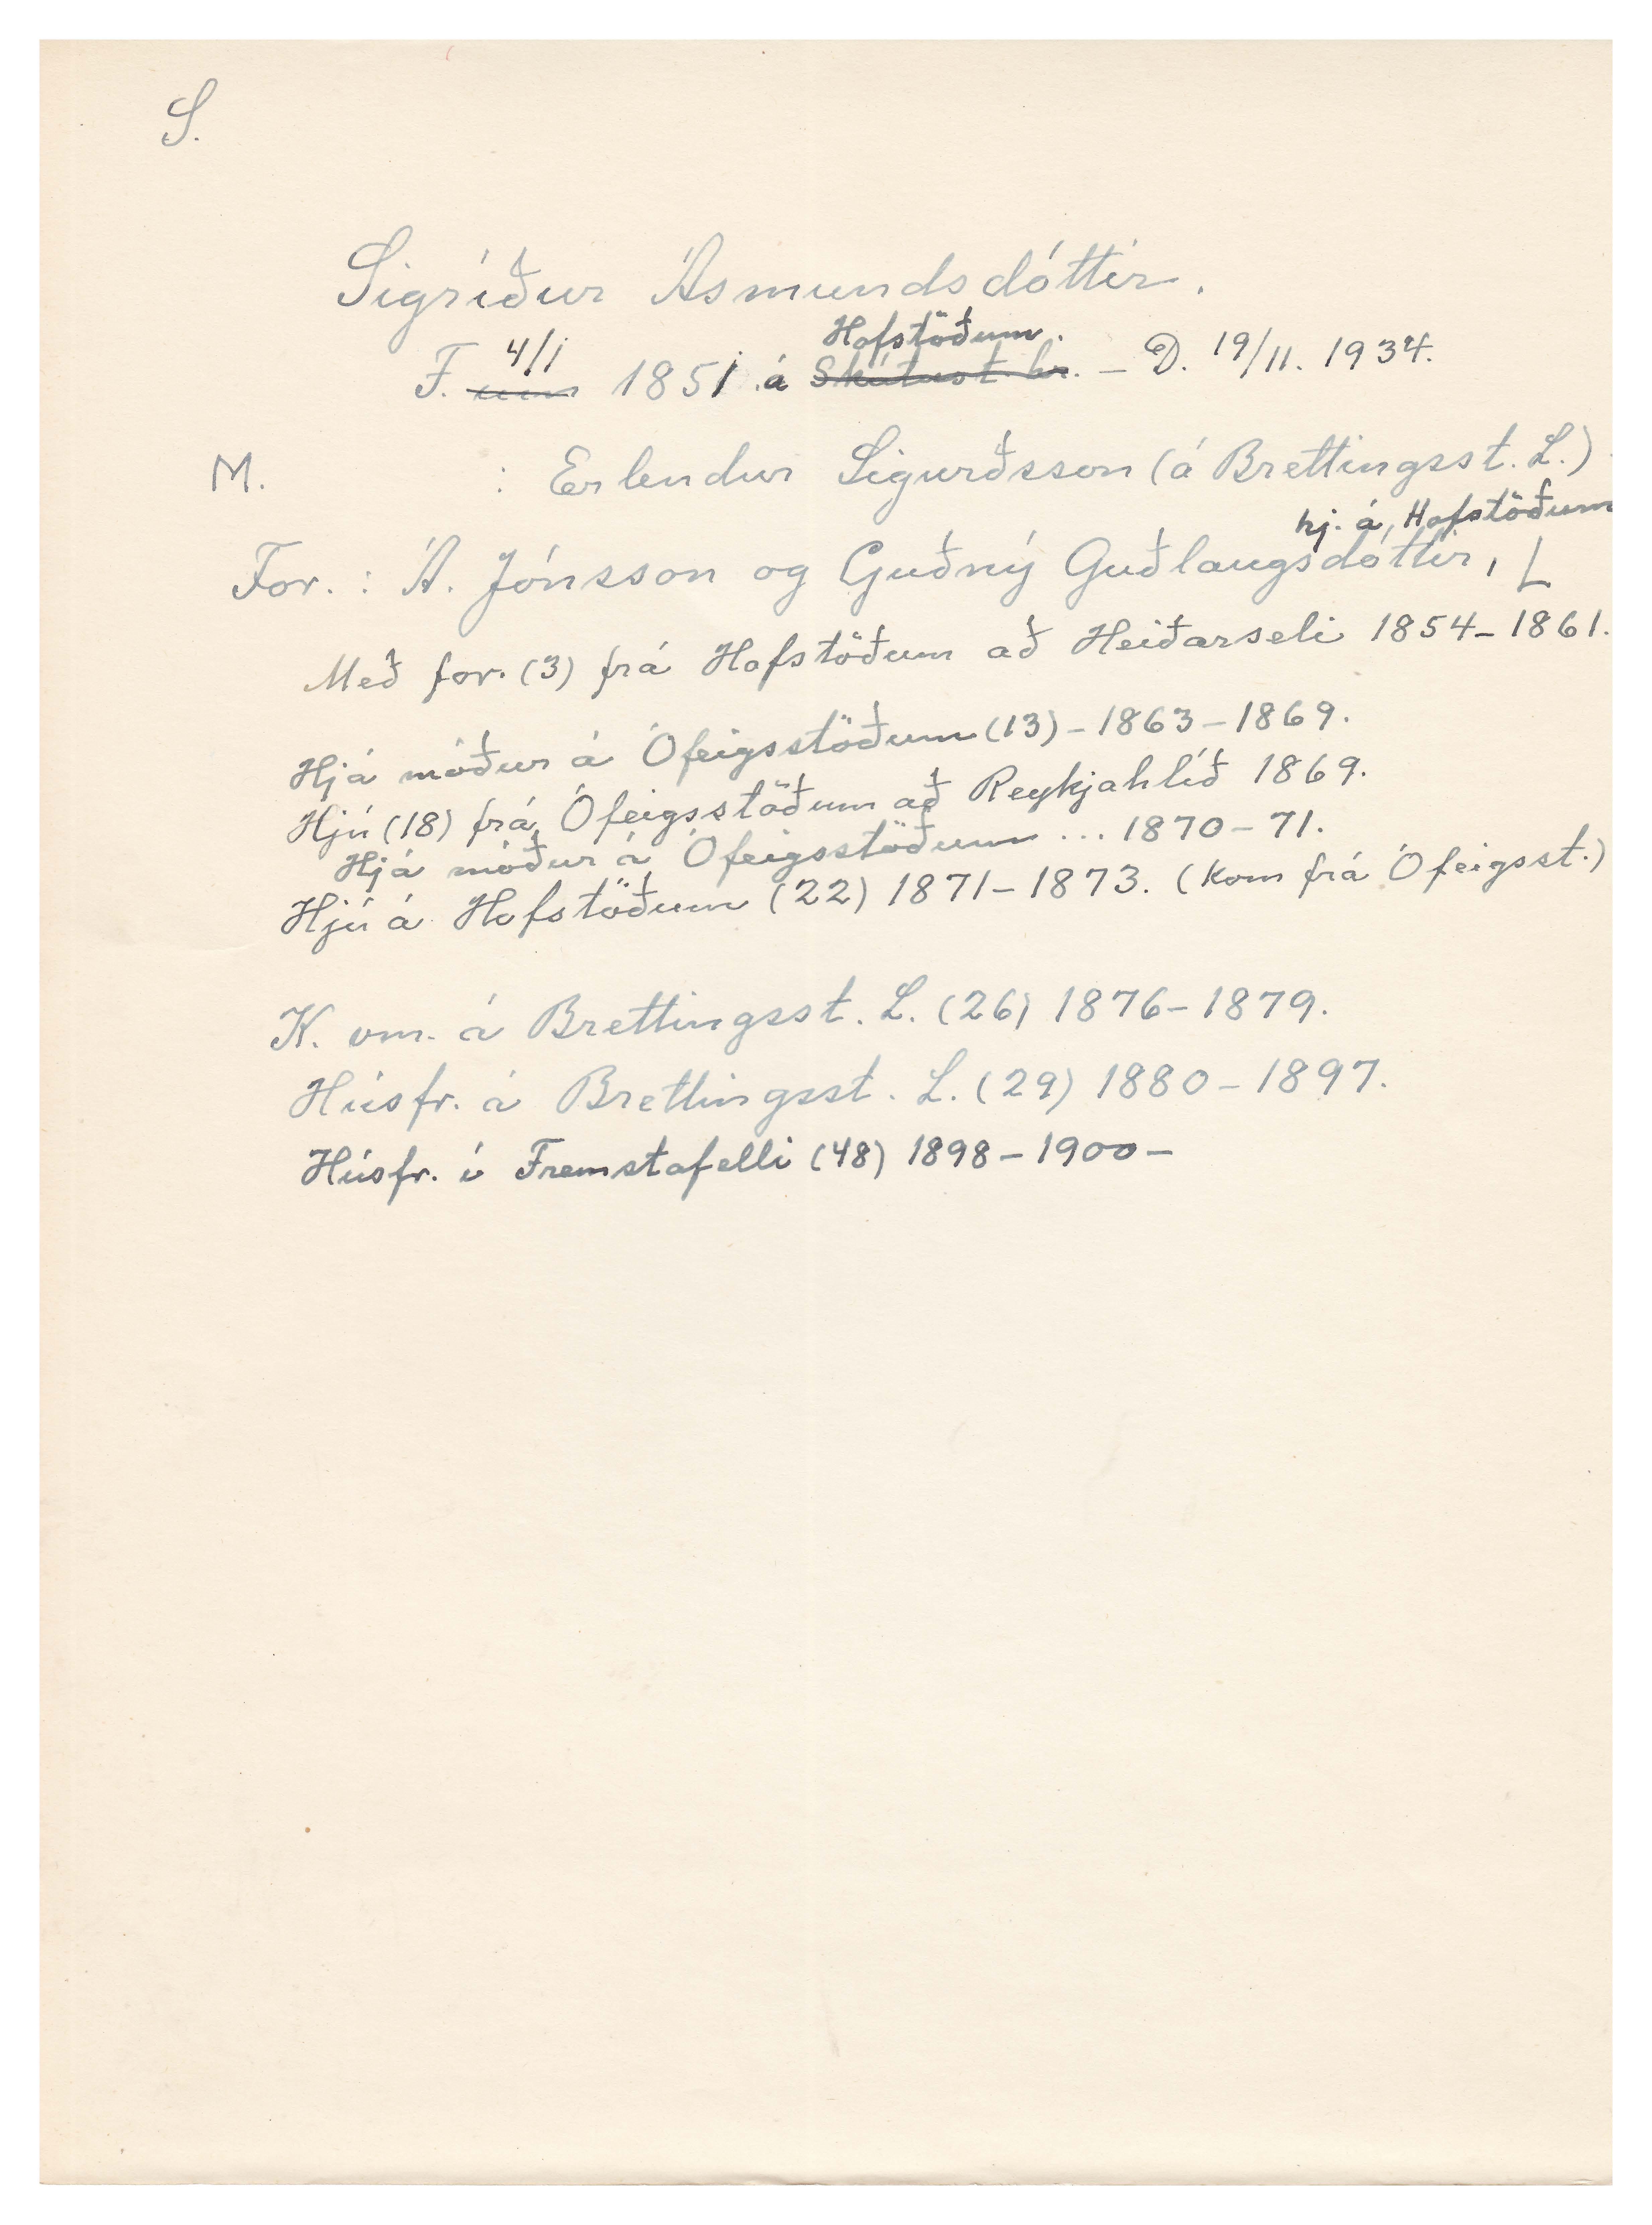 S.
Sigríður Ásmundsdóttir.
Hofstöðum.
F. 4/1 1851 á Skútust.hr. – D. 19/11. 1934.
M. : Erlendur Sigurðsson (á Brettingsst. L.)
hj. á Hofstöðum
For. : Á. Jónsson og Guðný Guðlaugsdóttir, L
Með for. (3) frá Hofstöðum að Heiðarseli 1854–1861.
Hjá móður á Ófeigsstöðum (13) – 1863–1869.
Hjú (18) frá Ófeigsstöðum að Reykjahlíð 1869.
Hjá móður á Ófeigsstöðum ... 1870–71.
Hjú á Hofstöðum (22) 1871–1873. (Kom frá Ófeigsst.)
K. vm. á Brettingsst. L. (26) 1876–1879.
Húsfr. á Brettingsst. L. (29) 1880–1897.
Húsfr. í Fremstafelli (48) 1898–1900–